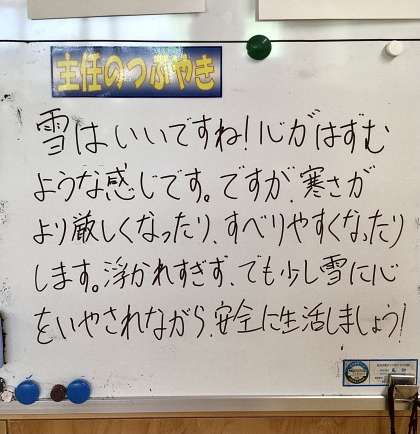 主任のつぶやき
雪はいいですね!心がはずむ
ような感じです。ですが、寒さが
より厳しくなったり、すべりやすくなったり
します。浮かれすぎず、でも少し雪に心
をいやされながら、安全に生活しましょう!